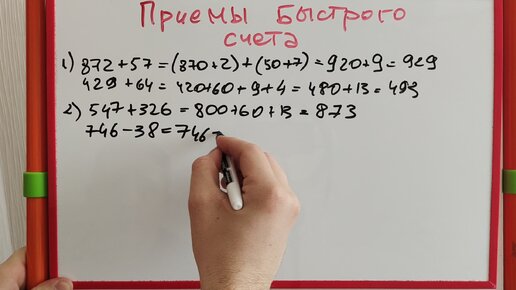 Приемы быстрого
счета
1) 872+57=(370+2)+(50+7)=920+9=929
429+64=420+60+9+4=480+13=493
2) 547+326=800+60+13=873
746-38=746-